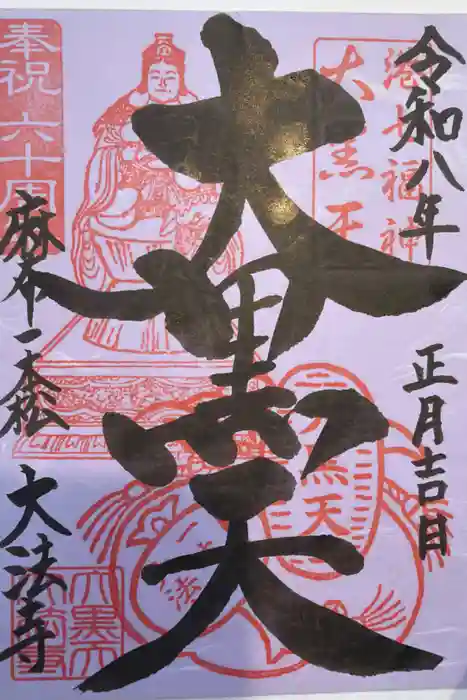 令和八年
正月吉日
港七福神
大黒天
大黒天
奉祝 六十周
麻布一本松
大法寺
黒天